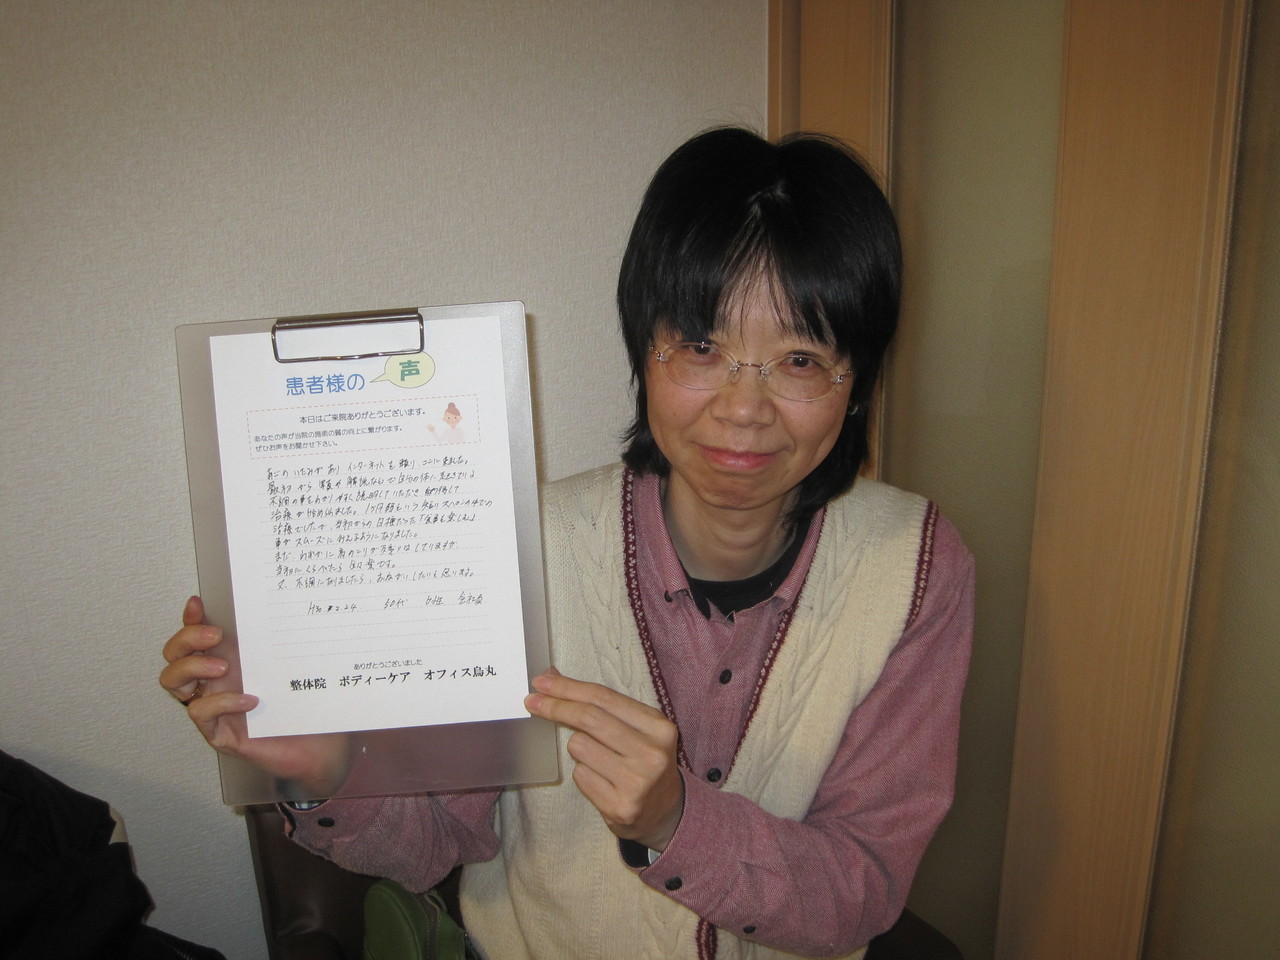 患者様の 声
本日はご来院ありがとうございます。
あなたの声が当院の施術の質の向上に繋がります。
ぜひお声をお聞かせ下さい。
あごのいたみがあり インターネットを頼り、ココに来ました。
最初から 事の 解説などで自分の体に起きている
不調の事をわかりやすく説明していただき 納得して
治療が始められました。1ヶ月弱という 短いスパンの中での
治療でしたが、当初からの目標だった「食事を楽しむ」
事がスムーズに行えるようになりました。
まだ、わずかに肩のこりが 残りはしていますが、
当初にくらべたら 楽です。
又、不調になりましたら、おねがいしたいと思います。
H30 2.24 50代 女性 会社員
ありがとうございました
整体院 ボディーケア オフィス烏丸